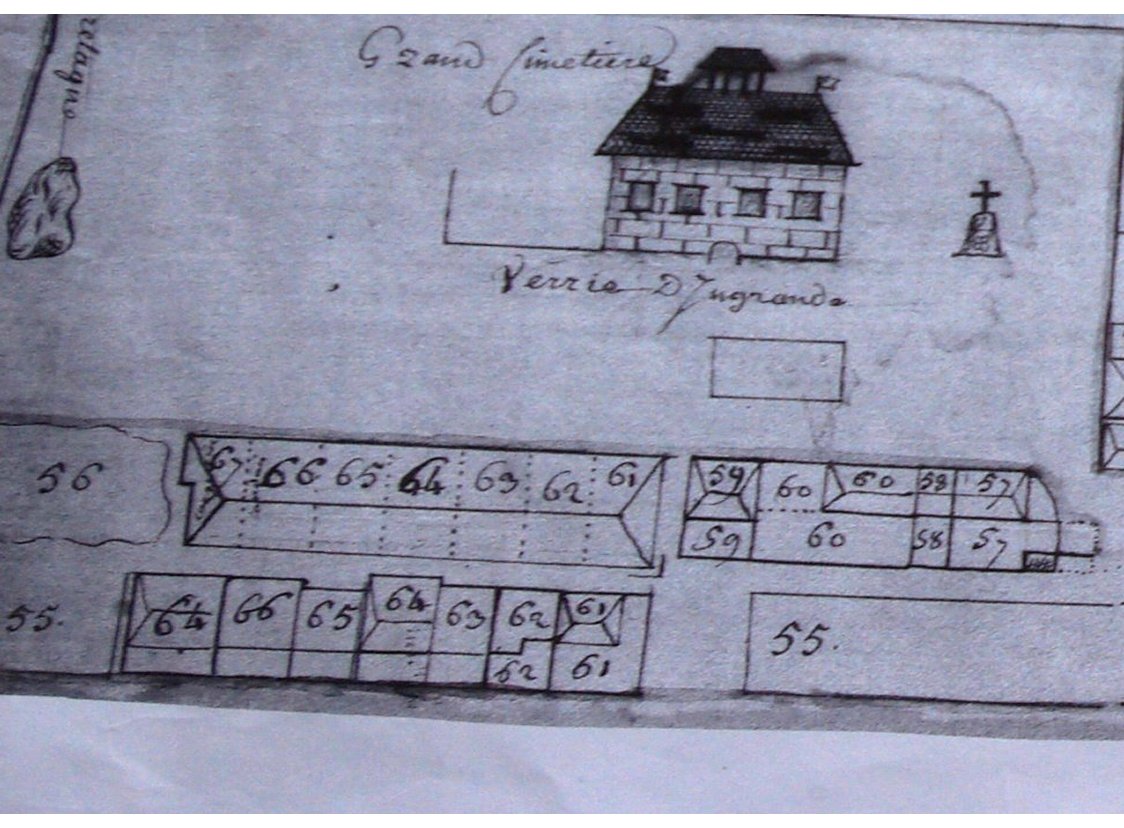 Grand Cimetiere
Verrie D'Ingrande
56
67 66 65 64 63 62 61
59 60 60 58 57
59 60 58 57
55.
64 66 65 64 63 62 61
62 61
55.